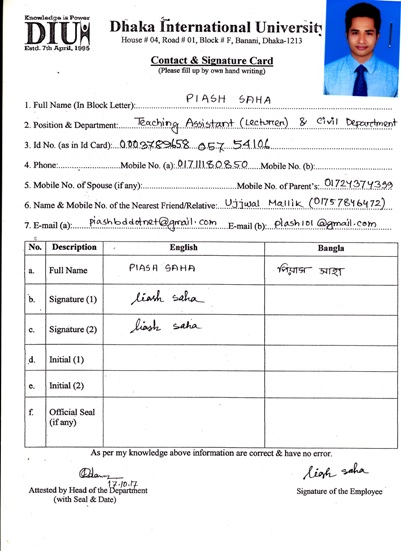 Knowledge is Power
DIU
Estd. 7th April, 1995
Dhaka International University
House # 04, Road # 01, Block # F, Banani, Dhaka-1213
Contact & Signature Card
(Please fill up by own hand writing)
1. Full Name (In Block Letter): PIASH SAHA
2. Position & Department: Teaching Assistant (Lecturer) & Civil Department
3. Id No. (as in Id Card): 0.009789658 057 54106
4. Phone: Mobile No. (a): 01711180850 Mobile No. (b):
5. Mobile No. of Spouse (if any): Mobile No. of Parent's: 01724374399
6. Name & Mobile No. of the Nearest Friend/Relative: Ujjwal Mallik (01757846472)
7. E-mail (a): piashbddotnet@gmail.com E-mail (b): piash101@gmail.com
No. Description English Bangla
a. Full Name PIASH SAHA পিয়াস সাহা
b. Signature (1) Piash saha
c. Signature (2) Piash saha
d. Initial (1)
e. Initial (2)
f. Official Seal
(if any)
As per my knowledge above information are correct & have no error.
17.10.17 Piash saha
Attested by Head of the Department Signature of the Employee
(with Seal & Date)